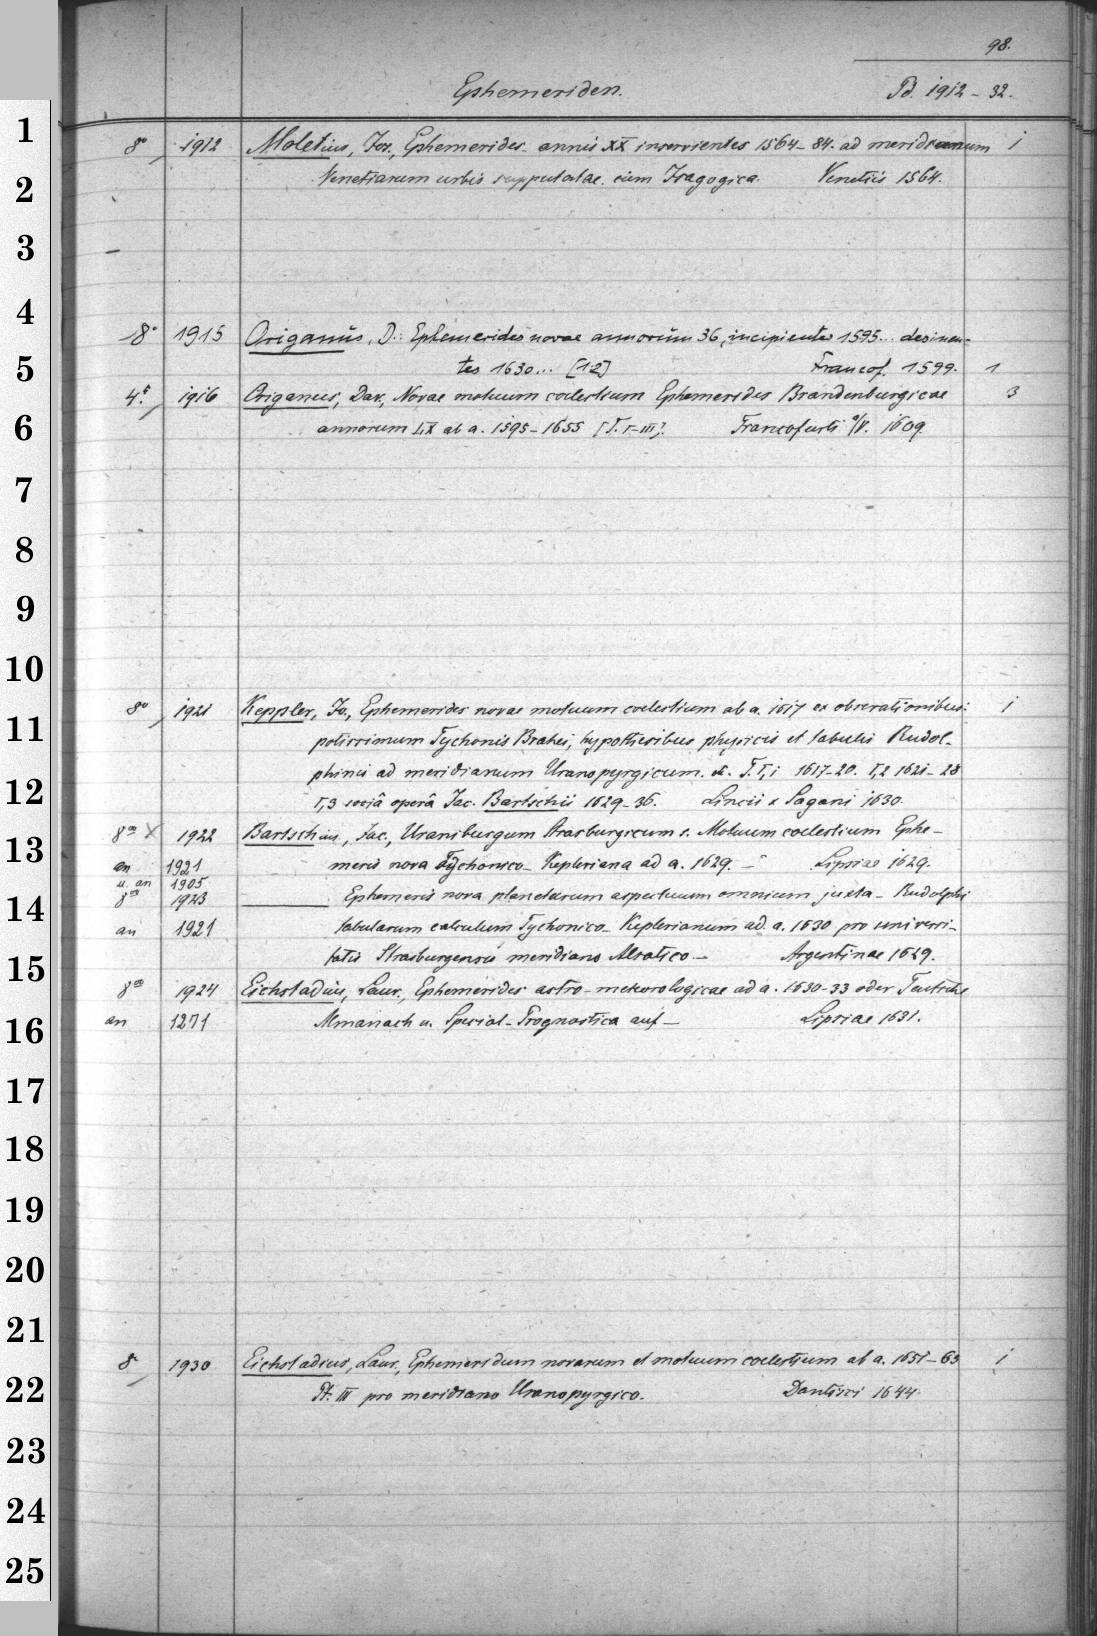 98.
Ephemeriden. Pd. 1912 - 32.
1 8° 1912 Moletius, Jos., Ephemerides annis XX inservientes 1564-84. ad meridianum 1
2 Venetiarum urbis supputatae. cum Isagogica. Venetiis 1564.
3
4 8° 1915 Origanus, D.: Ephemerides novae annorum 36, incipientes 1595... desinen-
5 tes 1630... [1-2] Francof. 1599. 1
4° 1916 Origanus, Dav., Novae motuum coelestium Ephemerides Brandenburgicae 3
6 annorum LX ab a. 1595-1655 [T. I-III]. Francofurti a/V. 1609.
7
8
9
10
11 8° 1921 Keppler, Jo., Ephemerides novae motuum coelestium ab a. 1617 ex observationibus 1
potissimum Tychonis Brahei, hypothesibus physicis et tabulis Rudol-
12 phinis ad meridianum Uranopyrgicum. T. I,1 1617-20. I,2 1621-28
I,3 sociâ operâ Jac. Bartschii 1629-36. Lincii & Sagani 1630.
13 8° X 1922 Bartschius, Jac., Uraniburgum Strasburgicum s. Motuum coelestium Ephe-
an 1921 meris nova Tychonico-Kepleriana ad a. 1629. — Lipsiae 1629.
u. an 1905
14 8° 1923 ——— Ephemeris nova planetarum aspectuum omnium juxta - Rudolphi
an 1921 tabularum calculum Tychonico-Keplerianum ad a. 1630 pro universi-
15 tatis Strasburgensis meridiano Alsatico — Argentinae 1629.
8° 1924 Eichstadius, Laur., Ephemerides astro-meteorologicae ad a. 1630-33 oder Teutsche
16 an 1271 Almanach u. Special-Prognostica auf — Lipsiae 1631.
17
18
19
20
21
8° 1930 Eichstadius, Laur., Ephemeridum novarum et motuum coelestium ab a. 1651-65 1
22 Pt. III pro meridiano Uranopyrgico. Dantisci 1644.
23
24
25